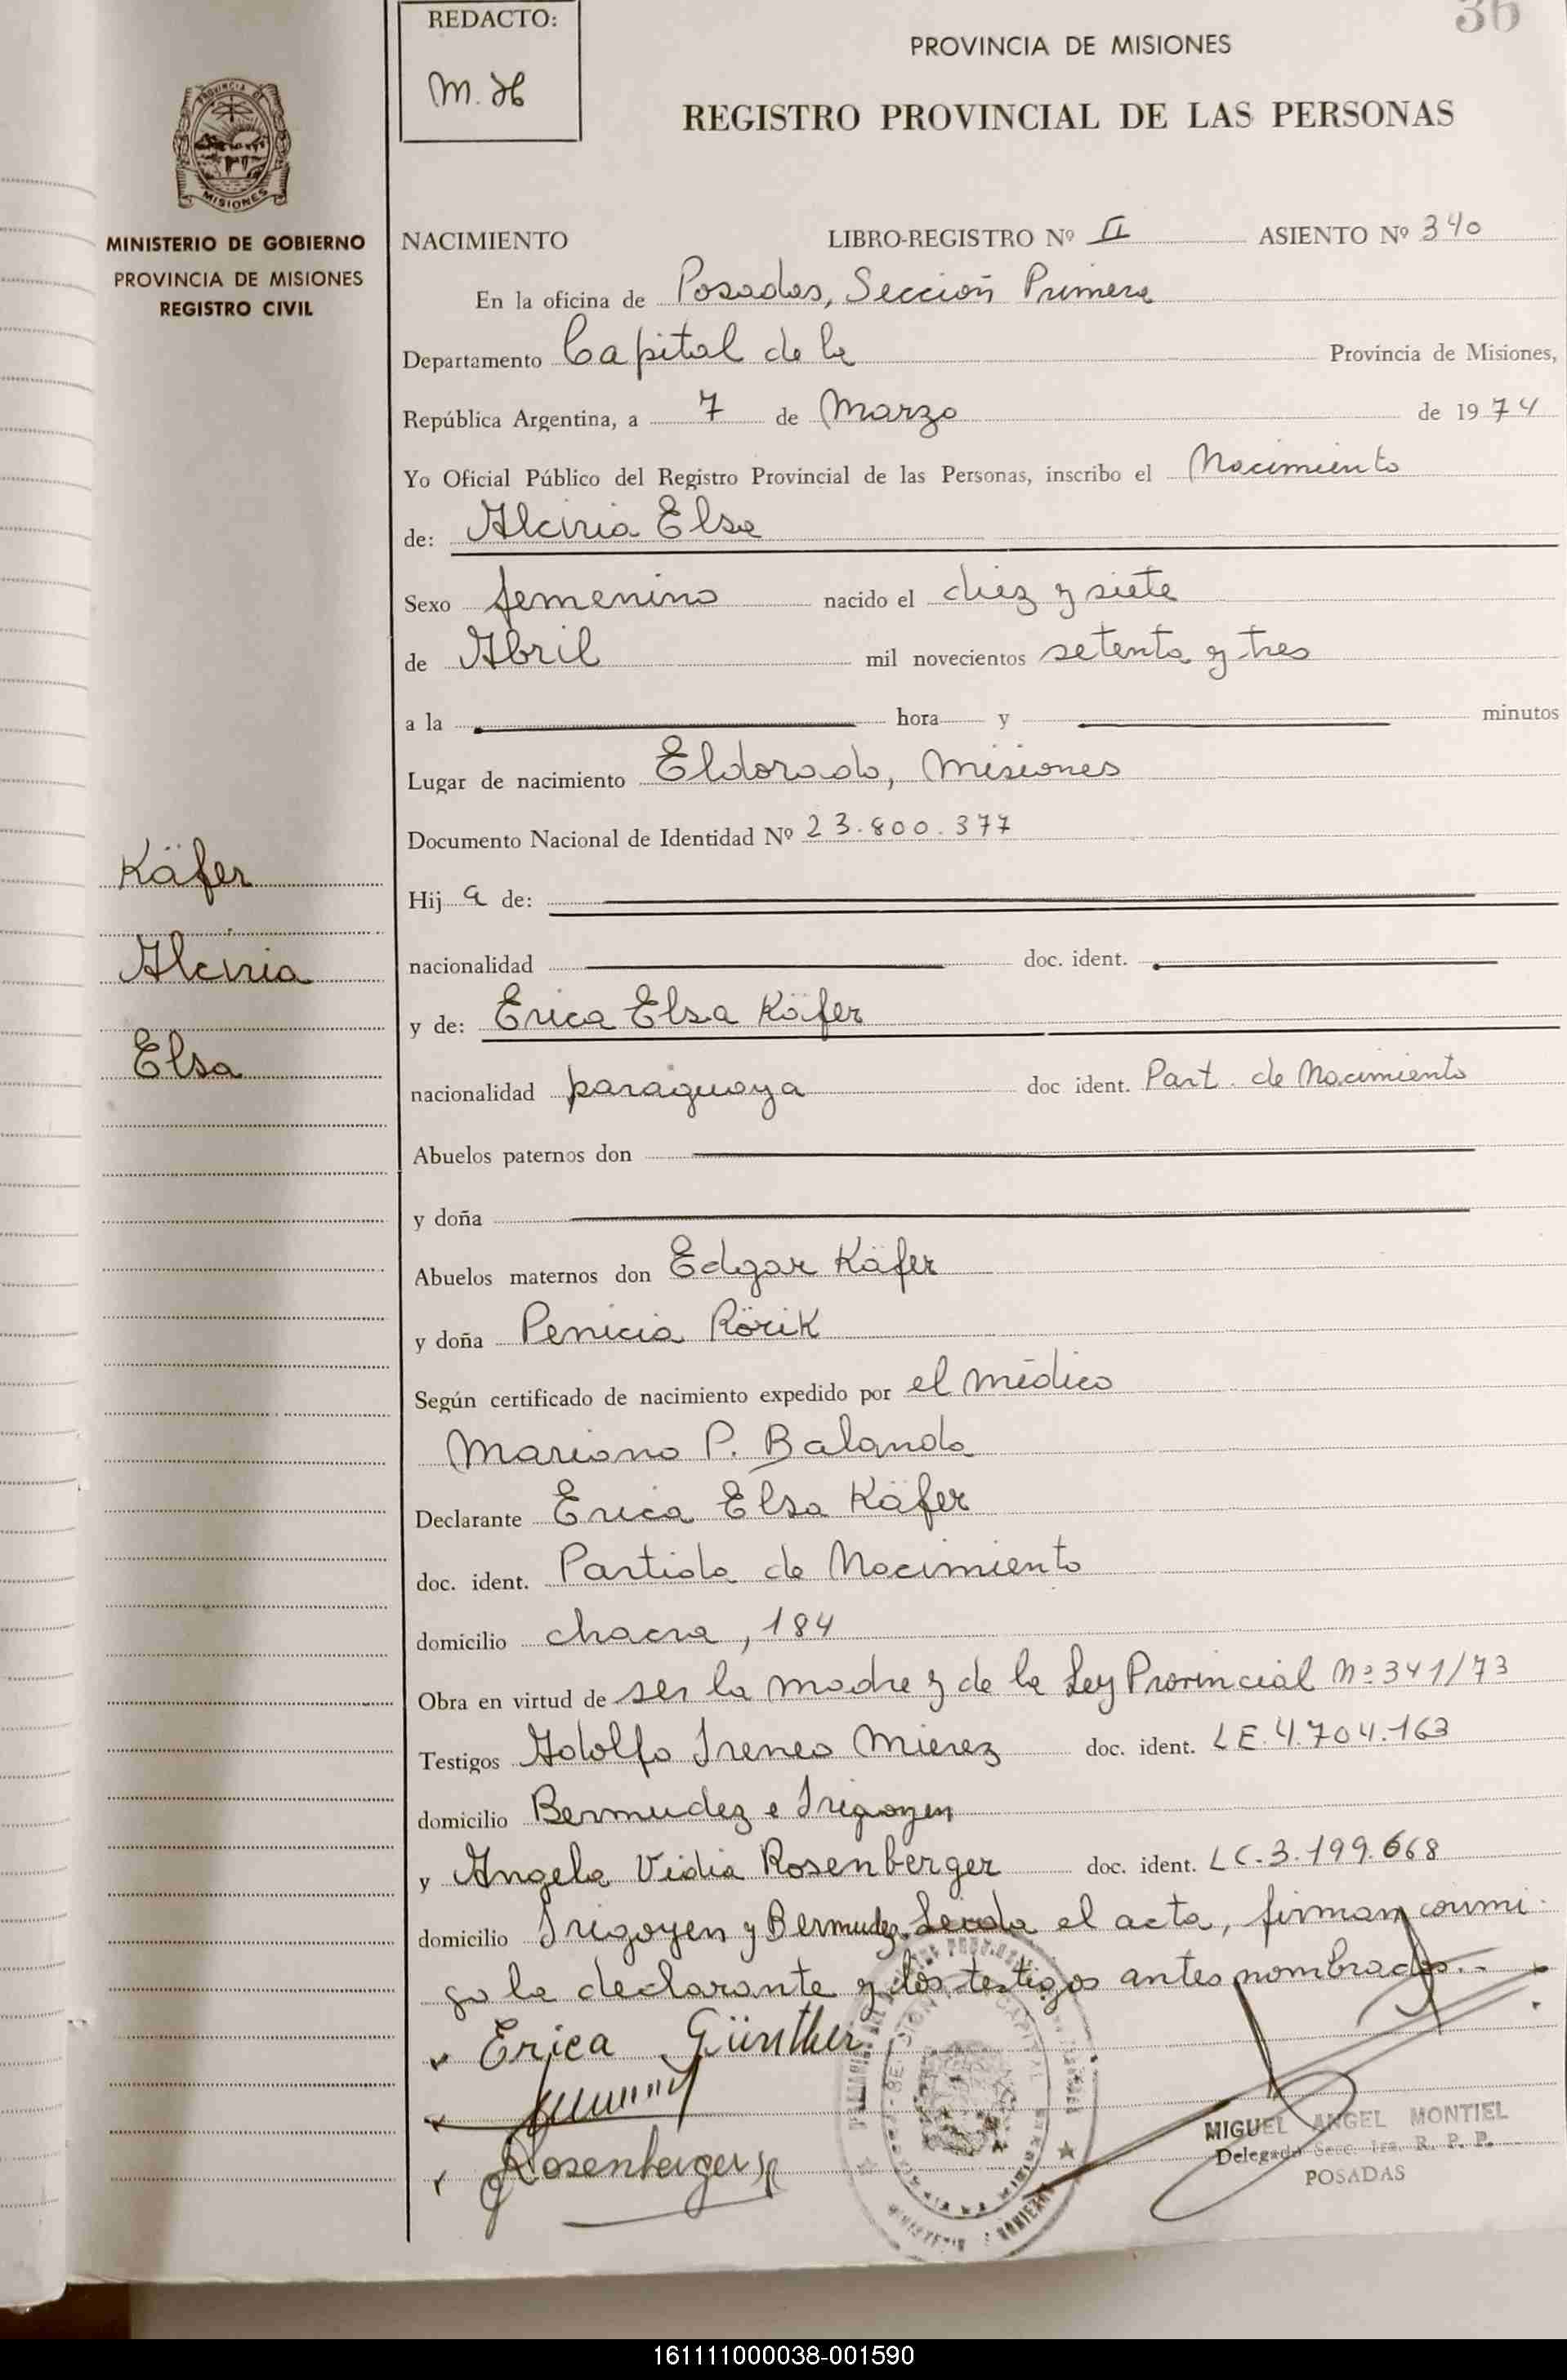 36
REDACTO:
M. H
PROVINCIA DE MISIONES
REGISTRO PROVINCIAL DE LAS PERSONAS
PROVINCIA DE
MISIONES
MINISTERIO DE GOBIERNO
PROVINCIA DE MISIONES
REGISTRO CIVIL
NACIMIENTO LIBRO-REGISTRO Nº II ASIENTO Nº 340
En la oficina de Posadas, Sección Primera
Departamento Capital de la Provincia de Misiones,
República Argentina, a 7 de Marzo de 1974
Yo Oficial Público del Registro Provincial de las Personas, inscribo el Nacimiento
de: Alciria Elsa
Sexo femenino nacido el diez y siete
de Abril mil novecientos setenta y tres
a la hora y minutos
Lugar de nacimiento Eldorado, Misiones
Documento Nacional de Identidad Nº 23.800.377
Käfer
Alciria
Elsa
Hij a de:
nacionalidad doc. ident.
y de: Erica Elsa Käfer
nacionalidad paraguaya doc ident. Part. de Nacimiento
Abuelos paternos don
y doña
Abuelos maternos don Edgar Käfer
y doña Penicia Rörik
Según certificado de nacimiento expedido por el médico
Mariano P. Balanda
Declarante Erica Elsa Käfer
doc. ident. Partida de Nacimiento
domicilio chacra, 184
Obra en virtud de ser la madre y de la Ley Provincial Nº 341/73
Testigos Adolfo Ireneo Mierez doc. ident. LE. 4.704.163
domicilio Bermudez e Irigoyen
y Angela Vidia Rosenberger doc. ident. LC. 3.199.668
domicilio Irigoyen y Bermudez. Leida el acta, firman conmi-
go la declarante y los testigos antes nombrados.-
Erica Günther
Rosenberger
MIGUEL ANGEL MONTIEL
Delegado Secc. 1ra. R. P. P.
POSADAS
161111000038-001590